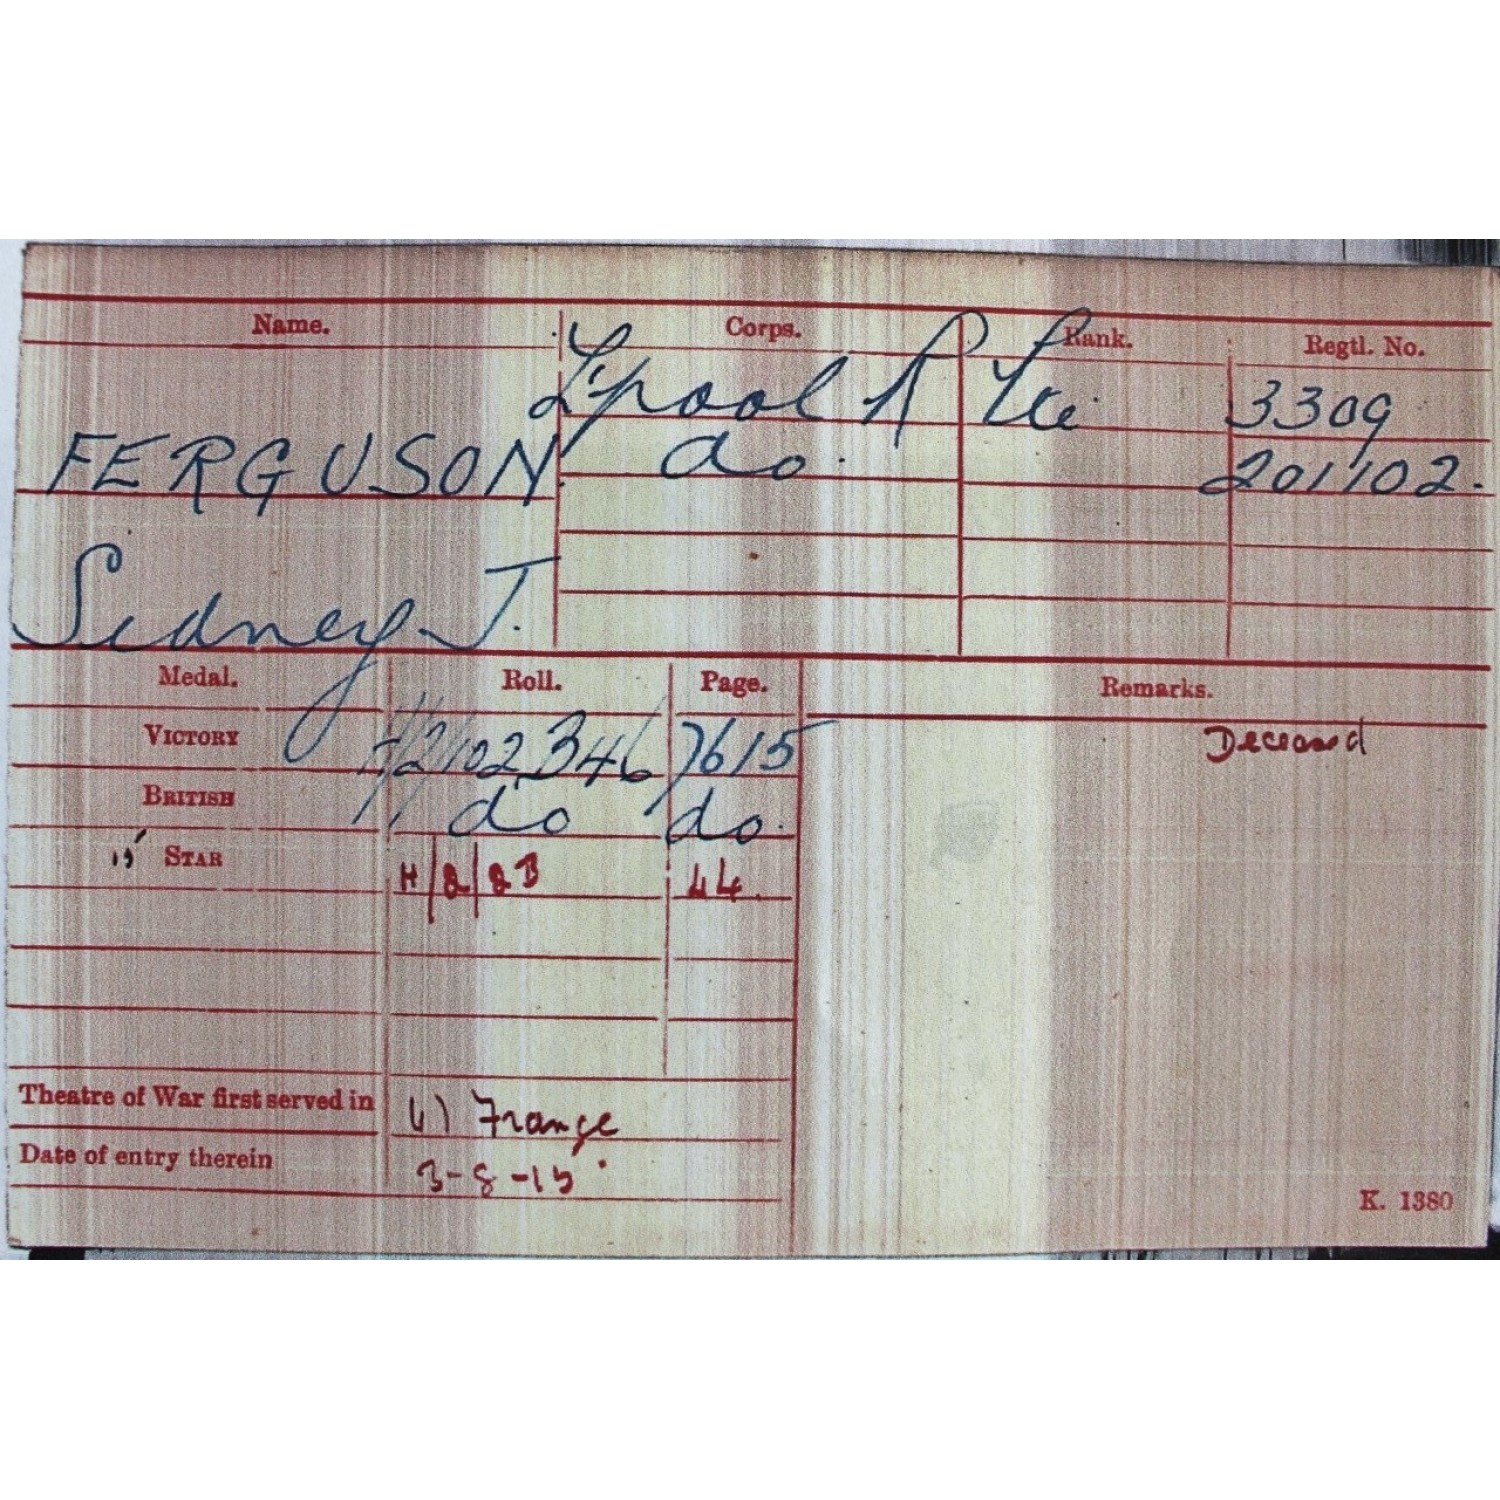 Name. Corps. Rank. Regtl. No.
L'pool R Pte 3309
FERGUSON do. 201102.
Sidney J.
Medal. Roll. Page. Remarks.
VICTORY H/2/102B46 7615 Deceased
BRITISH do do.
15 STAR H/2/8B 44.
Theatre of War first served in (1) France
Date of entry therein 3-8-15
K. 1380